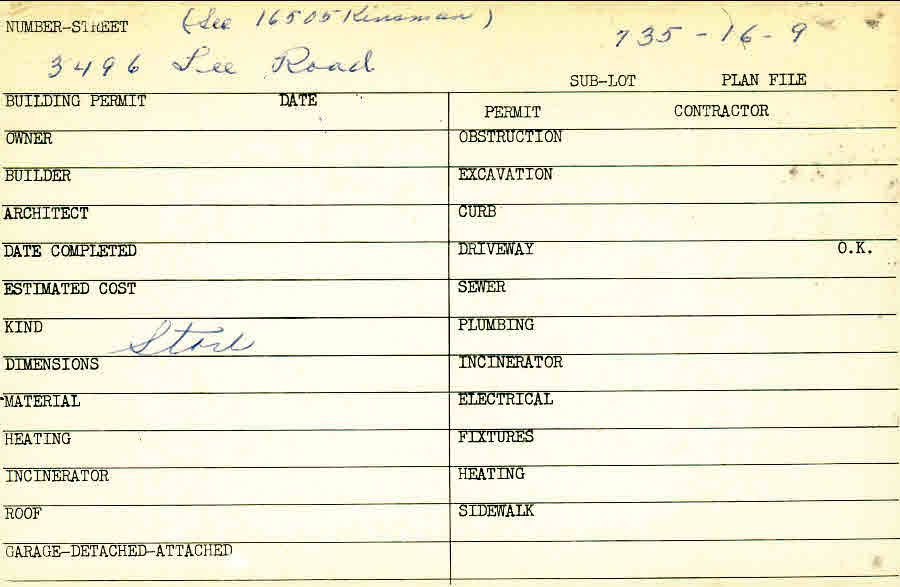 NUMBER-STREET (See 16505 Kinsman)
735-16-9
3496 Lee Road
SUB-LOT PLAN FILE
BUILDING PERMIT DATE
PERMIT CONTRACTOR
OWNER
OBSTRUCTION
BUILDER
EXCAVATION
ARCHITECT
CURB
DATE COMPLETED
DRIVEWAY O.K.
ESTIMATED COST
SEWER
KIND Store
PLUMBING
DIMENSIONS
INCINERATOR
MATERIAL
ELECTRICAL
HEATING
FIXTURES
INCINERATOR
HEATING
ROOF
SIDEWALK
GARAGE-DETACHED-ATTACHED